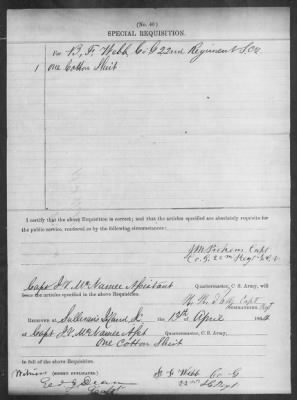 (No. 40)
SPECIAL REQUISITION.
For B. F. Webb Co. G 22nd Regiment S.C.V.
1 One Cotton Shirt
I certify that the above Requisition is correct; and that the articles specified are absolutely requisite for
the public service, rendered so by the following circumstances:
Capt
Co. G. 22nd Regt S.C.V.
Capt J. V. McNamee Assistant Quartermaster, C. S. Army, will
issue the articles specified in the above Requisition.
Capt
COMMANDING Regt
RECEIVED at Sullivan's Island S.C. the 13th of April 186
of Capt J. V. McNamee Asst Quartermaster, C. S. Army,
One Cotton Shirt
in full of the above Requisition.
Witness (SIGNED DUPLICATES.) Webb Co. G
22nd S.C. Regt